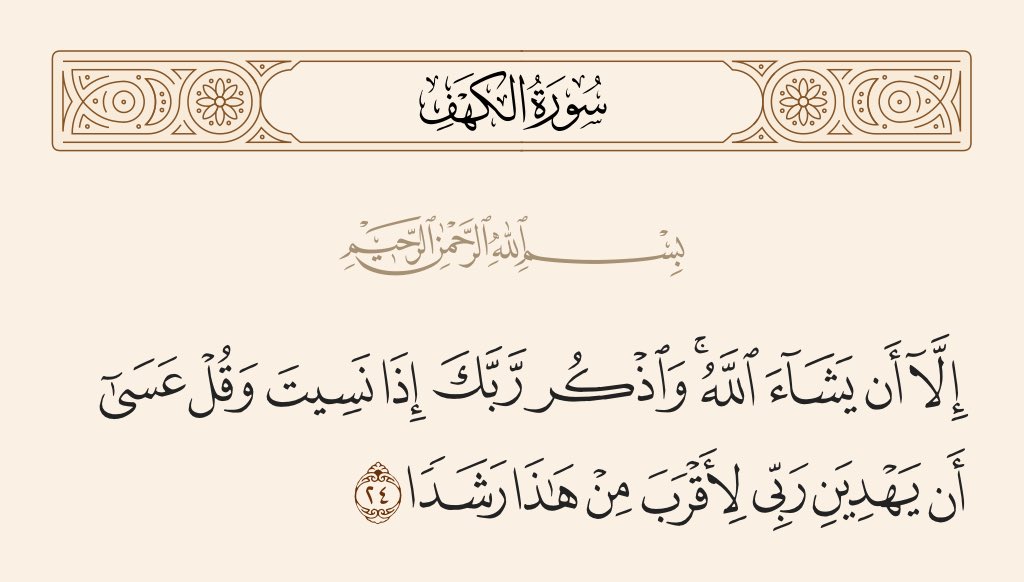 سُورَةُ الكَهۡفِ
بِسۡمِ ٱللَّهِ ٱلرَّحۡمَٰنِ ٱلرَّحِيمِ
إِلَّآ أَن يَشَآءَ ٱللَّهُۚ وَٱذۡكُر رَّبَّكَ إِذَا نَسِيتَ وَقُلۡ عَسَىٰٓ
أَن يَهۡدِيَنِ رَبِّي لِأَقۡرَبَ مِنۡ هَٰذَا رَشَدٗا ٢٤